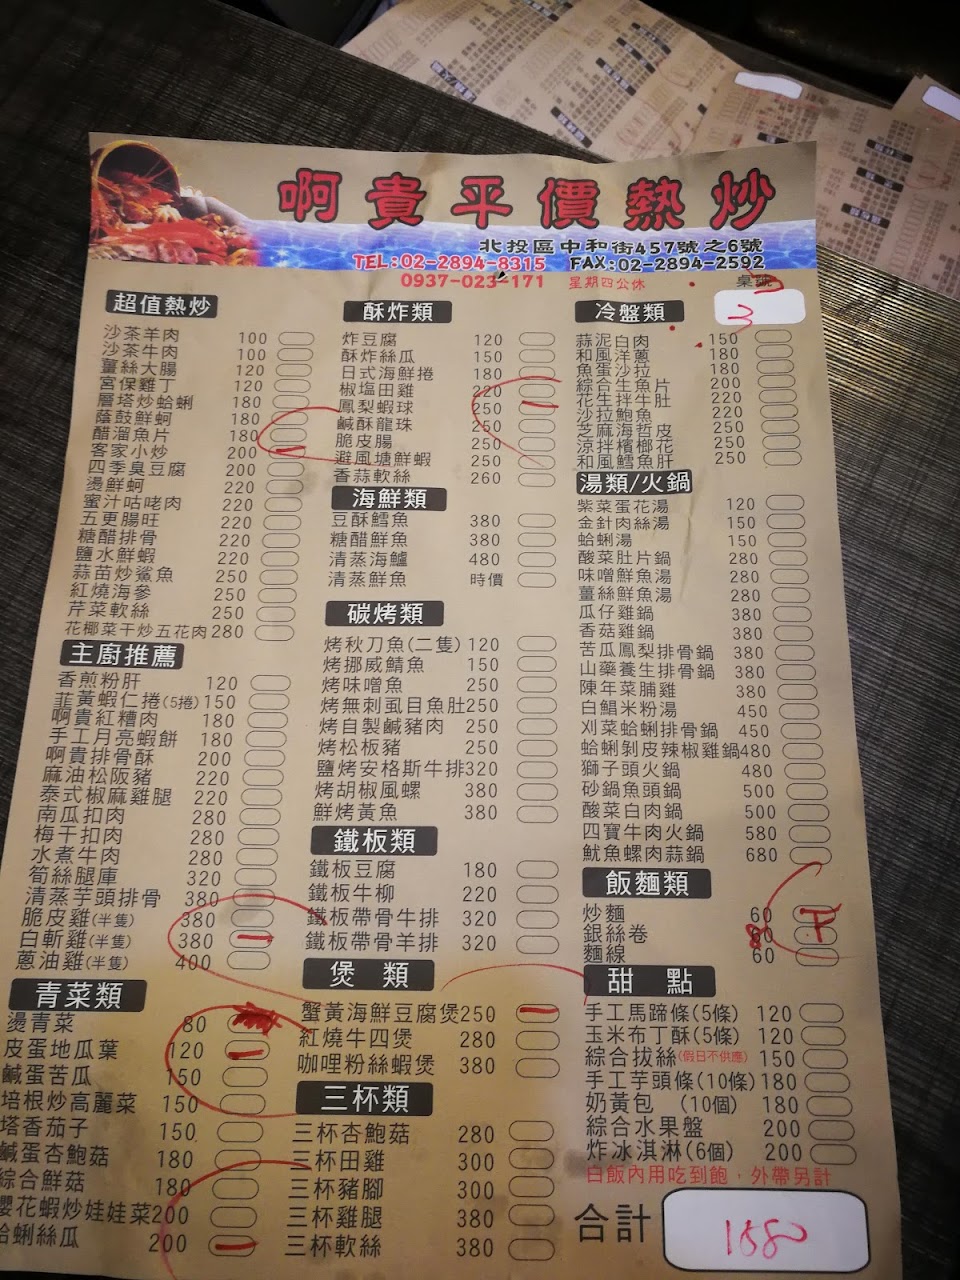 啊貴平價熱炒
北投區中和街457號之6號
TEL:02-2894-8315 FAX:02-2894-2592
0937-023-171 星期四公休 桌號
3
超值熱炒
沙茶羊肉 100
沙茶牛肉 100
薑絲大腸 120
宮保雞丁 120
層塔炒蛤蜊 180
蔭鼓鮮蚵 180
醋溜魚片 180
客家小炒 200
四季臭豆腐 200
燙鮮蚵 220
蜜汁咕咾肉 220
五更腸旺 220
糖醋排骨 220
鹽水鮮蝦 220
蒜苗炒鯊魚 250
紅燒海參 250
芹菜軟絲 250
花椰菜干炒五花肉 280
主廚推薦
香煎粉肝 120
韮黃蝦仁捲(5捲) 150
啊貴紅糟肉 180
手工月亮蝦餅 180
啊貴排骨酥 200
麻油松阪豬 220
泰式椒麻雞腿 220
南瓜扣肉 280
梅干扣肉 280
水煮牛肉 280
筍絲腿庫 320
清蒸芋頭排骨 380
脆皮雞(半隻) 380
白斬雞(半隻) 380
蔥油雞(半隻) 400
青菜類
燙青菜 80
皮蛋地瓜葉 120
鹹蛋苦瓜 150
培根炒高麗菜 150
塔香茄子 150
鹹蛋杏鮑菇 180
綜合鮮菇 180
櫻花蝦炒娃娃菜 200
蛤蜊絲瓜 200
酥炸類
炸豆腐 120
酥炸絲瓜 150
日式海鮮捲 180
椒塩田雞 220
鳳梨蝦球 250
鹹酥龍珠 250
脆皮腸 250
避風塘鮮蝦 250
香蒜軟絲 260
海鮮類
豆酥鱈魚 380
糖醋鮮魚 380
清蒸海鱸 480
清蒸鮮魚 時價
碳烤類
烤秋刀魚(二隻) 120
烤挪威鯖魚 150
烤味噌魚 250
烤無刺虱目魚肚 250
烤自製鹹豬肉 250
烤松板豬 250
鹽烤安格斯牛排 320
烤胡椒風螺 380
鮮烤黃魚 380
鐵板類
鐵板豆腐 180
鐵板牛柳 220
鐵板帶骨牛排 320
鐵板帶骨羊排 320
煲類
蟹黃海鮮豆腐煲 250
紅燒牛四煲 280
咖哩粉絲蝦煲 380
三杯類
三杯杏鮑菇 280
三杯田雞 300
三杯豬腳 300
三杯雞腿 380
三杯軟絲 380
冷盤類
蒜泥白肉 150
和風洋蔥 180
魚蛋沙拉 180
綜合生魚片 200
花生拌牛肚 220
沙拉鮑魚 220
芝麻海哲皮 250
涼拌檳榔花 250
和風鱈魚肝 250
湯類/火鍋
紫菜蛋花湯 120
金針肉絲湯 150
蛤蜊湯 150
酸菜肚片鍋 280
味噌鮮魚湯 280
薑絲鮮魚湯 280
瓜仔雞鍋 380
香菇雞鍋 380
苦瓜鳳梨排骨鍋 380
山藥養生排骨鍋 380
陳年菜脯雞 380
白鯧米粉湯 450
刈菜蛤蜊排骨鍋 450
蛤蜊剝皮辣椒雞鍋 480
獅子頭火鍋 480
砂鍋魚頭鍋 500
酸菜白肉鍋 500
四寶牛肉火鍋 580
魷魚螺肉蒜鍋 680
飯麵類
炒麵 60
銀絲卷 60
麵線 60
甜點
手工馬蹄條(5條) 120
玉米布丁酥(5條) 120
綜合拔絲(假日不供應) 150
手工芋頭條(10條) 180
奶黃包 (10個) 180
綜合水果盤 200
炸冰淇淋(6個) 200
白飯內用吃到飽，外帶另計
合計 1580